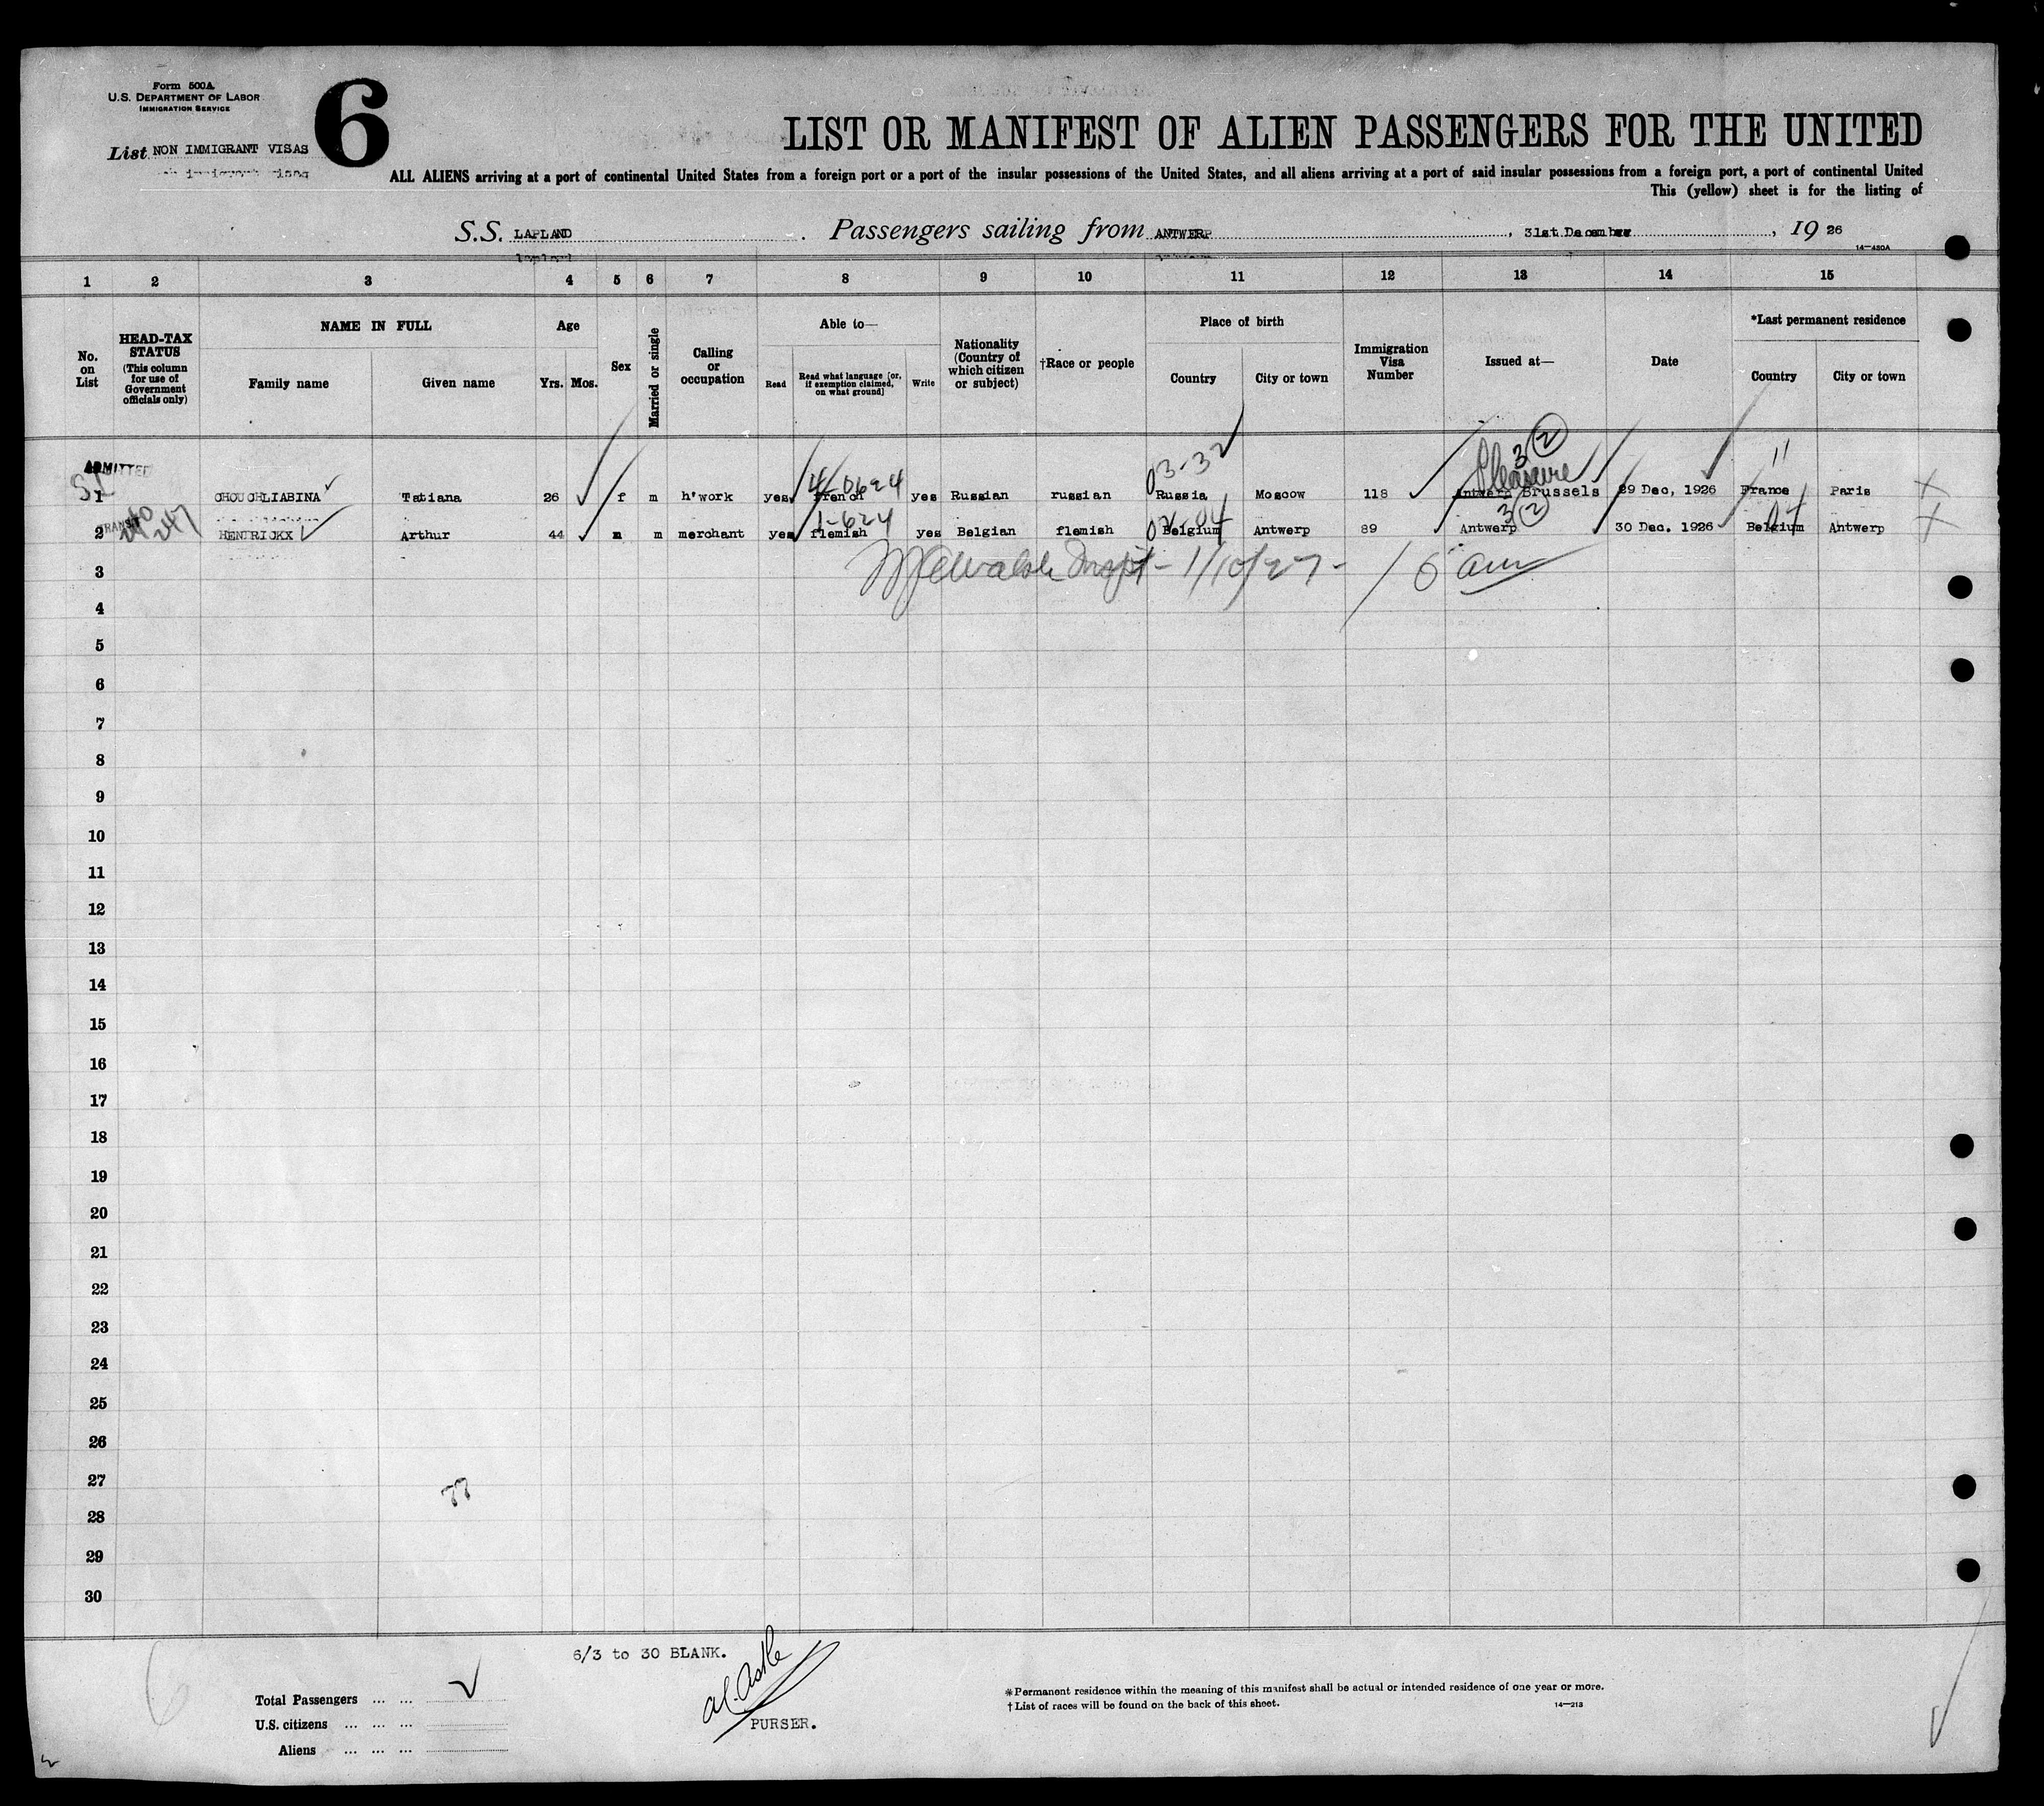 Form 500A
U.S. DEPARTMENT OF LABOR
IMMIGRATION SERVICE
6
List NON IMMIGRANT VISAS
LIST OR MANIFEST OF ALIEN PASSENGERS FOR THE UNITED
ALL ALIENS arriving at a port of continental United States from a foreign port or a port of the insular possessions of the United States, and all aliens arriving at a port of said insular possessions from a foreign port, a port of continental United
This (yellow) sheet is for the listing of
S.S. LAPLAND. Passengers sailing from ANTWERP, 31st December, 19 26
14—480A
1 2 3 4 5 6 7 8 9 10 11 12 13 14 15
No. on List
HEAD-TAX STATUS (This column for use of Government officials only)
NAME IN FULL
Family name Given name
Age
Yrs. Mos.
Sex
Married or single
Calling or occupation
Able to—
Read Read what language [or, if exemption claimed, on what ground] Write
Nationality (Country of which citizen or subject)
†Race or people
Place of birth
Country City or town
Immigration Visa Number
Issued at—
Date
*Last permanent residence
Country City or town
ADMITTED 03-32 Pleasure 3 (2) 11
4-0624
1 CHOUCHLIABINA Tatiana 26 f m h'work yes French yes Russian russian Russia Moscow 118 Antwerp Brussels 29 Dec, 1926 France Paris
TRANSIT 1-624 3 (2)
2 HENDRICKX Arthur 44 m m merchant yes flemish yes Belgian flemish Belgium Antwerp 89 Antwerp 30 Dec. 1926 Belgium Antwerp
3 Walsh Inspt - 1/10/27 -
4
5
6
7
8
9
10
11
12
13
14
15
16
17
18
19
20
21
22
23
24
25
26
27
77
28
29
30
6/3 to 30 BLANK.
6
Total Passengers ... ...
U.S. citizens ... ... ...
Aliens ... ... ...
PURSER.
*Permanent residence within the meaning of this manifest shall be actual or intended residence of one year or more.
†List of races will be found on the back of this sheet. 14—213